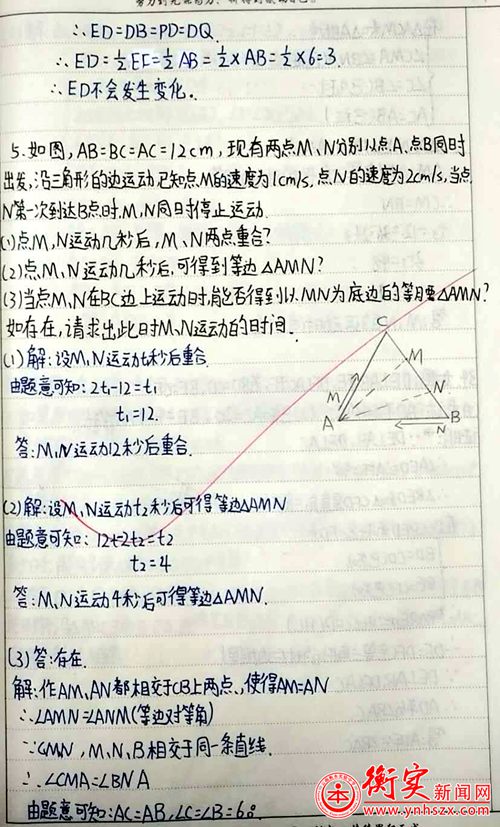 ∴ED=DB=PD=DQ.
∴ED=½EF=½AB=½×AB=½×6=3.
∴ED不会发生变化.
5.如图,AB=BC=AC=12cm,现有两点M、N分别从点A、点B同时
出发,沿三角形的边运动,已知点M的速度为1cm/s,点N的速度为2cm/s,当点
N第一次到达B点时,M、N同时停止运动.
(1)点M、N运动几秒后,M、N两点重合?
(2)点M、N运动几秒后,可得到等边△AMN?
(3)当点M、N在BC边上运动时,能否得到以MN为底边的等腰△AMN?
如存在,请求出此时M、N运动的时间.
(1)解:设M、N运动t₁秒后重合.
由题意可知:2t₁-12=t₁
t₁=12.
答:M、N运动12秒后重合.
C
M
M
N
A
N
B
(2)解:设M、N运动t₂秒后可得等边△AMN
由题意可知:12+2t₂=t₂
t₂=4
答:M、N运动4秒后可得等边△AMN.
(3)答:存在.
解:作AM、AN都相交于CB上两点,使得AM=AN
∴∠AMN=∠ANM(等边对等角)
∵C,M,N,B相交于同一条直线.
∴∠CMA=∠BNA
由题意可知:AC=AB,∠C=∠B=60°
衡实新闻网
www.ynhszx.com